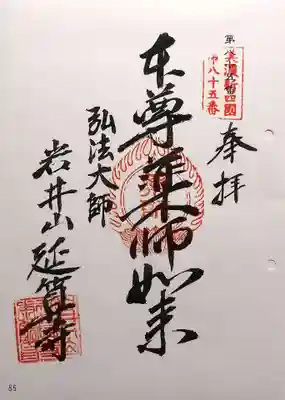 奉拝
美濃新四國
第八十五番
本尊薬師如来
弘法大師
岩井山延算寺
85